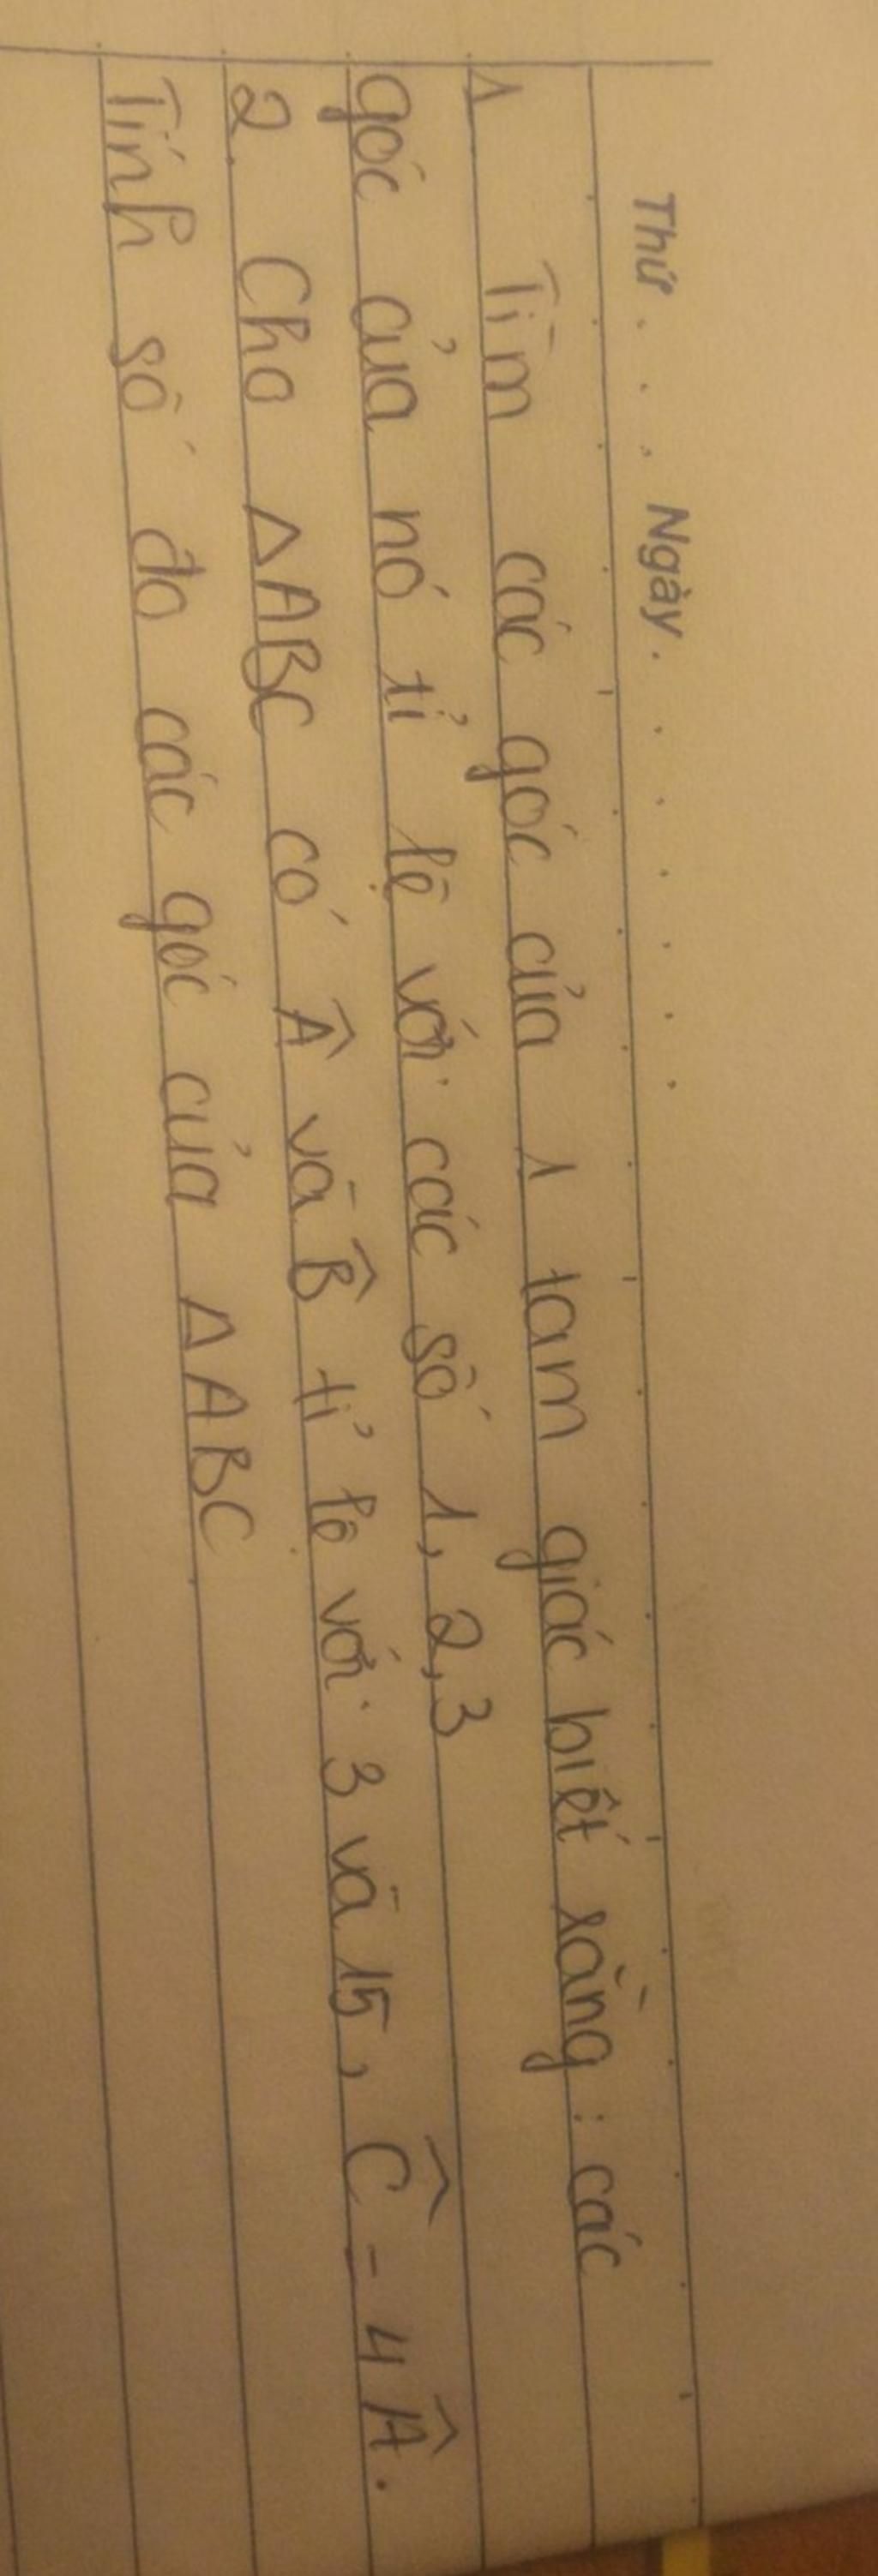 Thứ . . . Ngày. . . . . . .
1 Tìm các góc của 1 tam giác biết rằng : các
góc của nó tỉ lệ với các số 1, 2, 3
2. Cho ΔABC có Â và B̂ tỉ lệ với 3 và 15, Ĉ = 4Â.
Tính số đo các góc của ΔABC